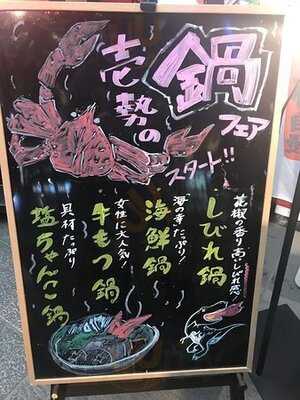 壱勢の
鍋
フェア
スタート!!
花椒の香り高いしびれ感!
しびれ鍋
海の幸たっぷり!
海鮮鍋
女性に大人気!
牛もつ鍋
具材たっぷり
塩ちゃんこ鍋